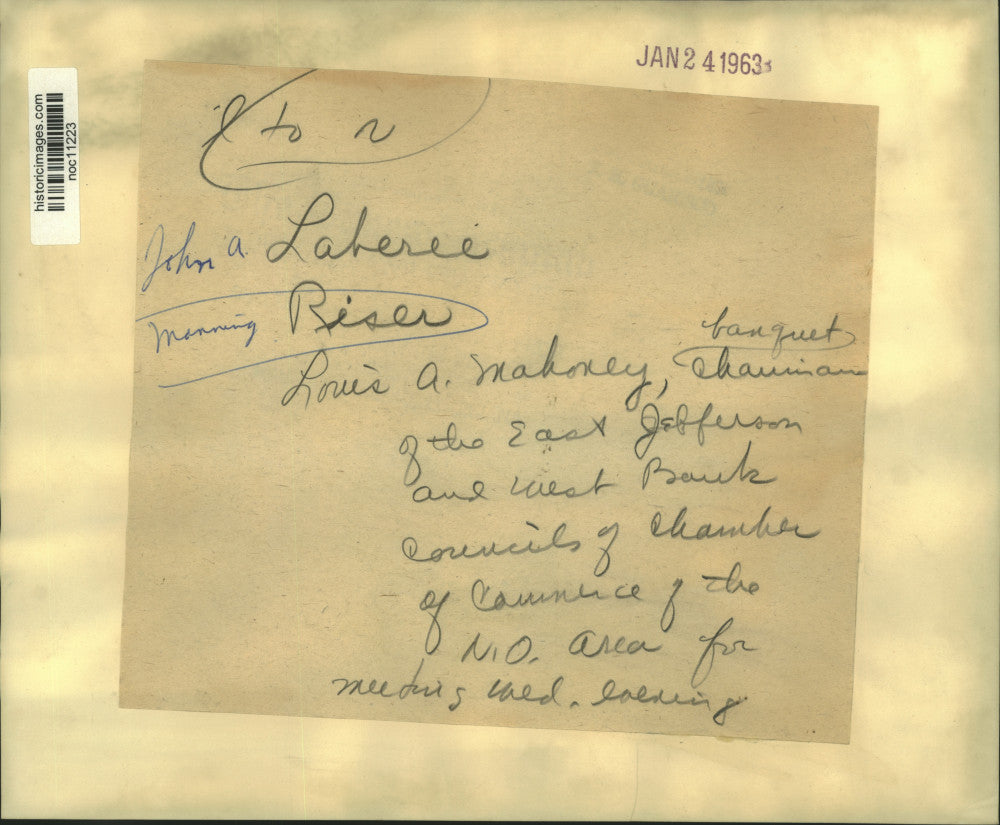 JAN 24 1963
historicimages.com
noc11223
l to r
John A. Laberee
Manning Biser
Louis A. Mahoney, banquet chairman
of the East Jefferson
and West Bank
Councils of Chamber
of Commerce of the
N.O. Area for
meeting Wed. evening